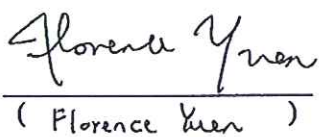 Florence Yuen
( Florence Yuen )